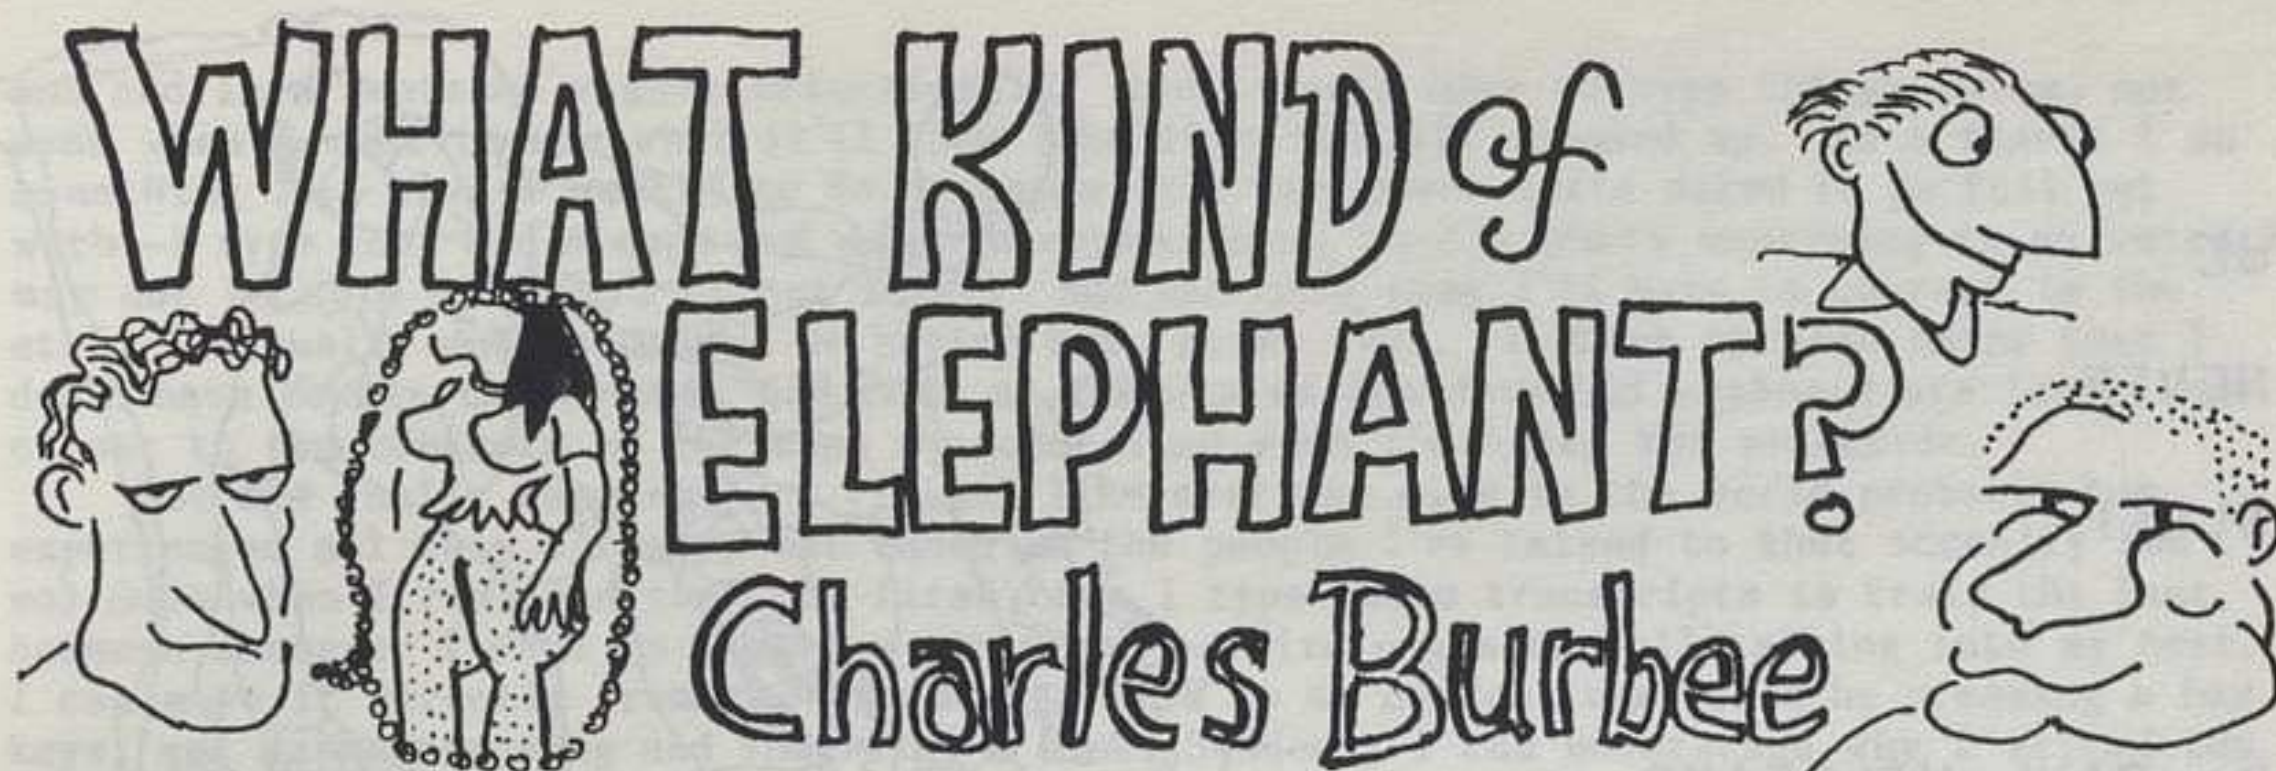 WHAT KIND of
ELEPHANT?
Charles Burbee